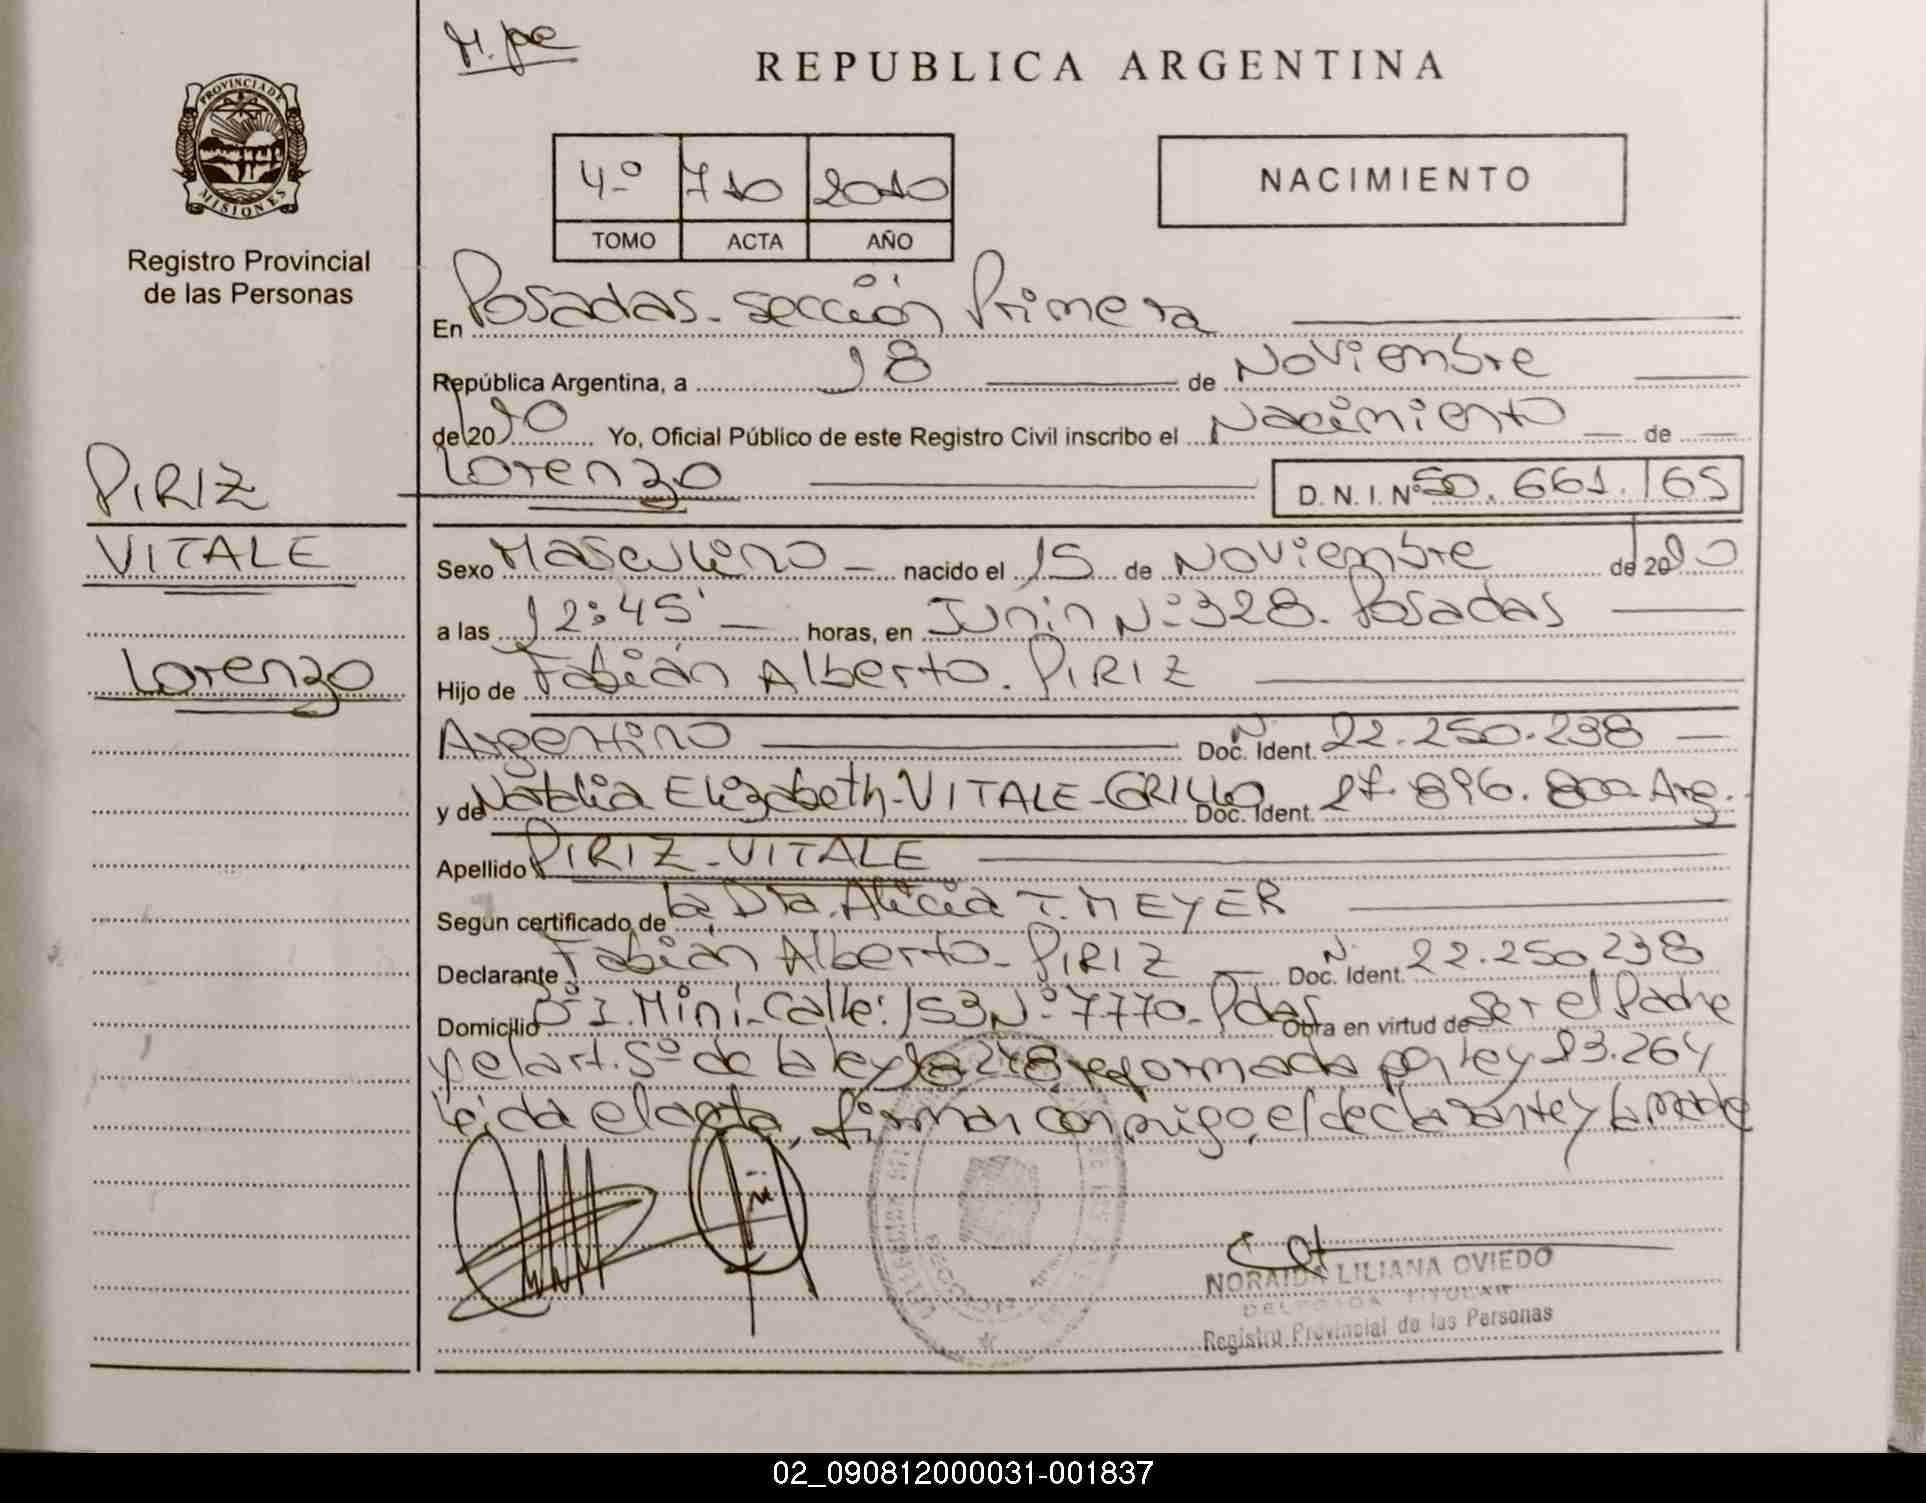 M. pe
REPUBLICA ARGENTINA
PROVINCIA DE
MISIONES
Registro Provincial
de las Personas
4-º 710 2010
TOMO ACTA AÑO
NACIMIENTO
En Posadas. sección Primera
República Argentina, a 18 de Noviembre
de 2010 Yo, Oficial Público de este Registro Civil inscribo el Nacimiento de
Lorenzo D. N. I. Nº 50.661.165
PIRIZ
VITALE
Lorenzo
Sexo Masculino nacido el 15 de Noviembre de 2010
a las 12:45' horas, en Junín Nº 328. Posadas
Hijo de Fabián Alberto. PIRIZ
Argentino Doc. Ident. Nº 22.250.238
y de Natalia Elizabeth-VITALE-GRILLO Doc. Ident. 27.896.800 Arg.
Apellido PIRIZ-VITALE
Según certificado de la Dra. Alicia T. MEYER
Declarante Fabián Alberto-PIRIZ Doc. Ident. Nº 22.250.238
Domicilio Bº I. Miní-Calle: 153 Nº 7770-Pdas Obra en virtud de Ser el Padre
y el art. 5º de la ley 18248 reformada por ley 23.264
Leída el acta, firman conmigo, el declarante y la madre
NORAIDA LILIANA OVIEDO
DELEGADA TITULAR
Registro Provincial de las Personas
02_090812000031-001837